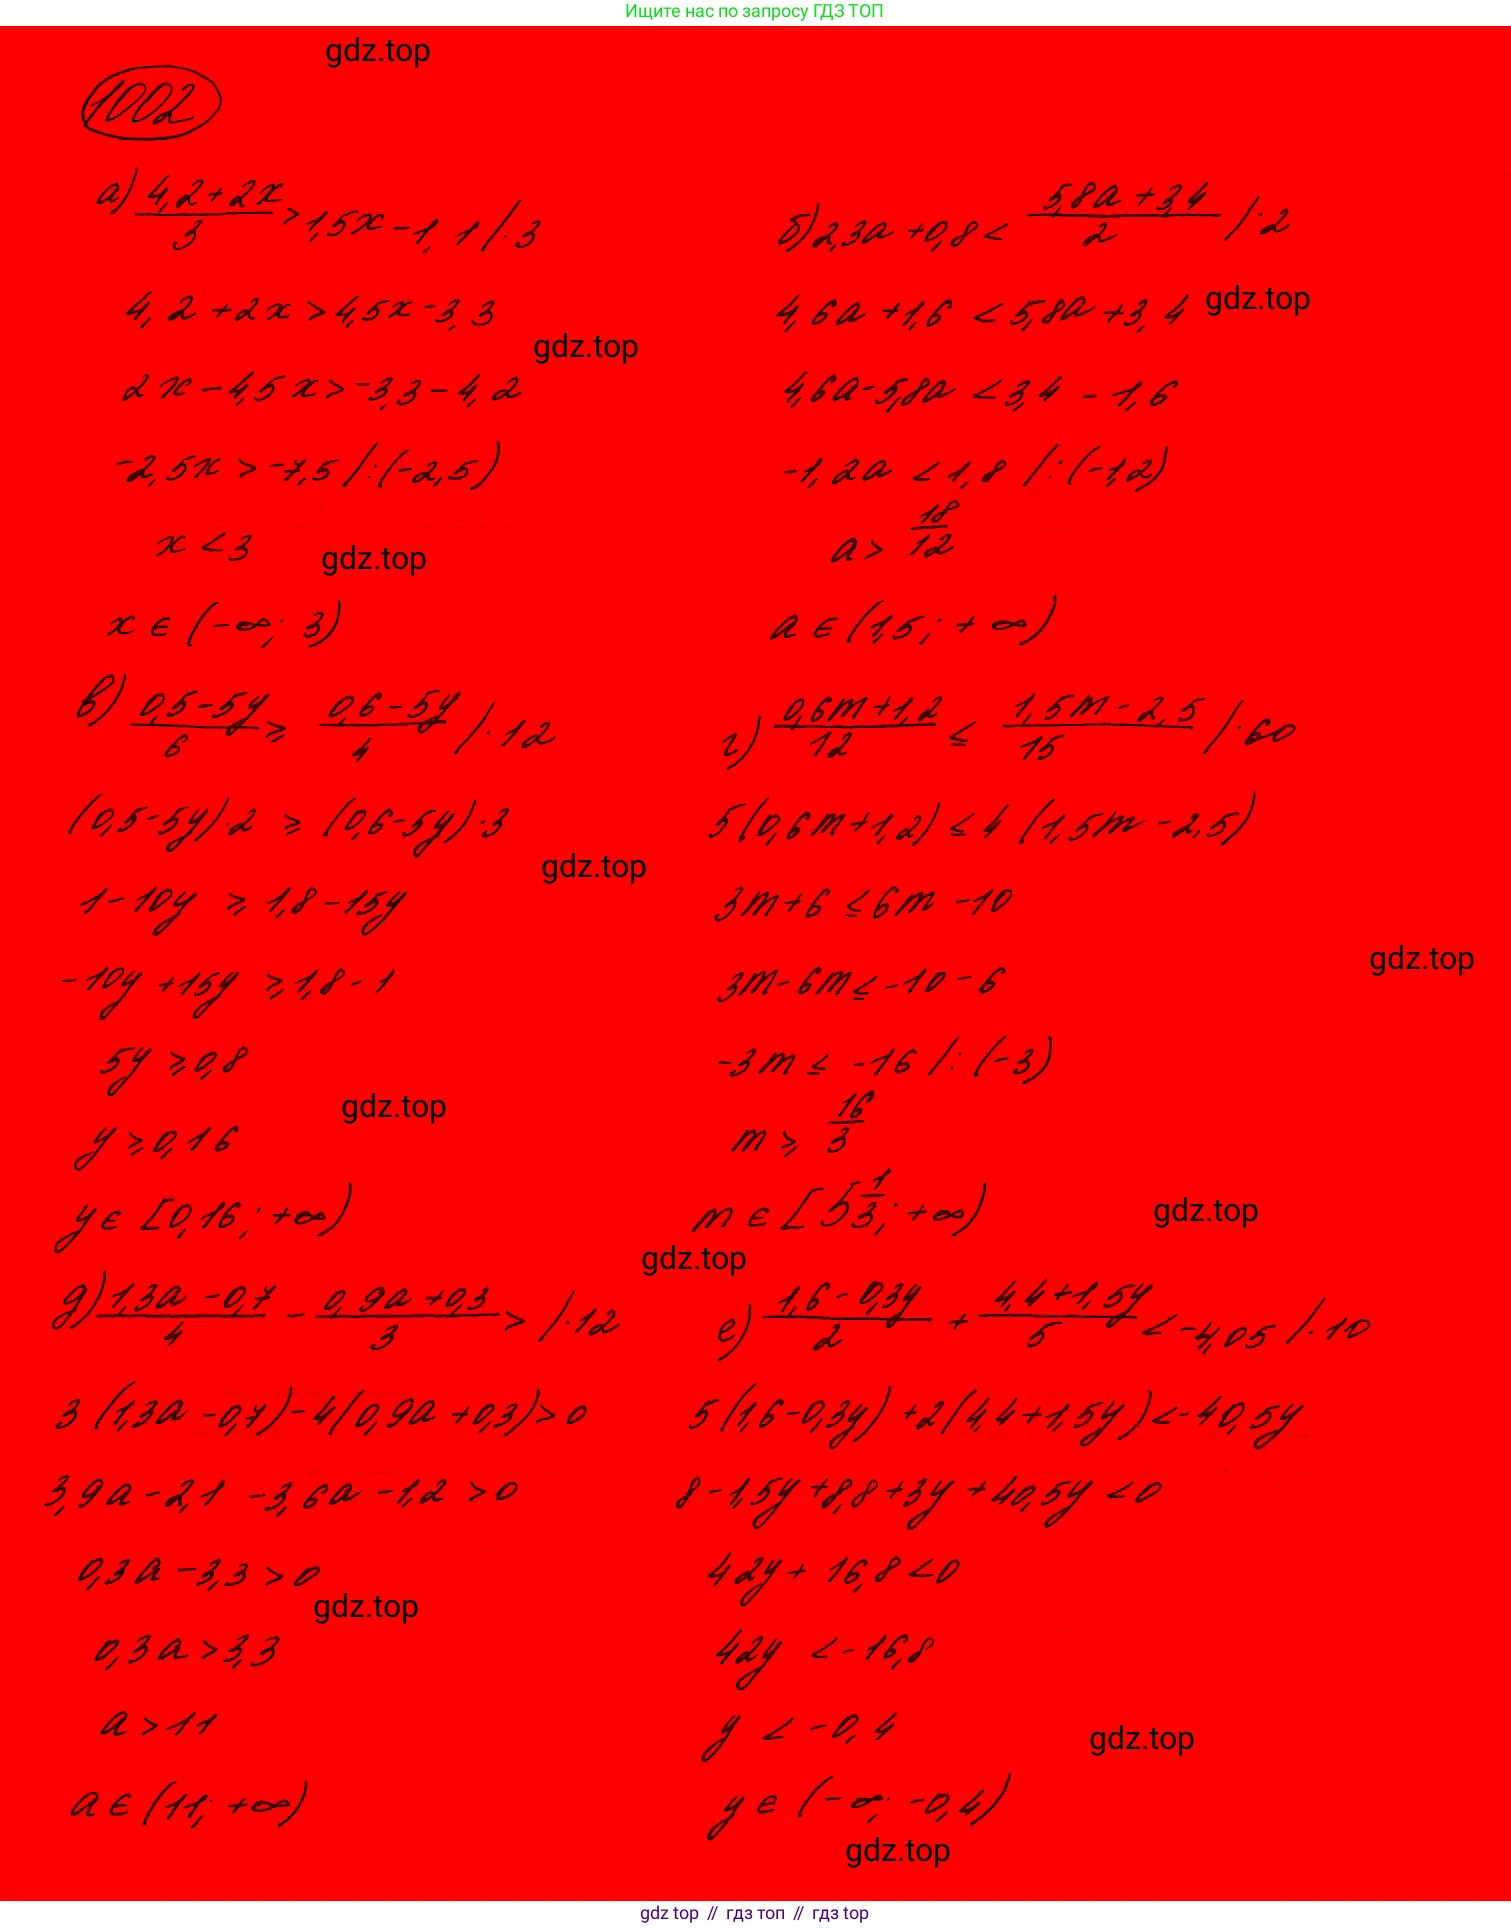 Ищите нас по запросу ГДЗ ТОП
gdz.top
1002
а) (4,2+2x)/3 > 1,5x-1,1 /·3
4,2+2x>4,5x-3,3
gdz.top
2x-4,5x>-3,3-4,2
-2,5x>-7,5 /:(-2,5)
x<3
gdz.top
x∈(-∞; 3)
б) 2,3a+0,8< (5,8a+3,4)/2 /·2
4,6a+1,6<5,8a+3,4
gdz.top
4,6a-5,8a<3,4-1,6
-1,2a<1,8 /:(-1,2)
a> 18/12
a∈(1,5; +∞)
в) (0,5-5y)/6 ≥ (0,6-5y)/4 /·12
(0,5-5y)·2 ≥ (0,6-5y)·3
gdz.top
1-10y ≥ 1,8-15y
-10y+15y ≥ 1,8-1
5y ≥ 0,8
gdz.top
y ≥ 0,16
y∈[0,16; +∞)
г) (0,6m+1,2)/12 ≤ (1,5m-2,5)/15 /·60
5(0,6m+1,2) ≤ 4(1,5m-2,5)
3m+6 ≤ 6m-10
gdz.top
3m-6m ≤ -10-6
-3m ≤ -16 /:(-3)
m ≥ 16/3
m∈[5 1/3; +∞)
gdz.top
gdz.top
д) (1,3a-0,7)/4 - (0,9a+0,3)/3 > /·12
3(1,3a-0,7)-4(0,9a+0,3)>0
3,9a-2,1-3,6a-1,2>0
0,3a-3,3>0
gdz.top
0,3a>3,3
a>11
a∈(11; +∞)
е) (1,6-0,3y)/2 + (4,4+1,5y)/5 < -4,05 /·10
5(1,6-0,3y)+2(4,4+1,5y)<-40,5y
8-1,5y+8,8+3y+40,5y<0
42y+16,8<0
42y<-16,8
y<-0,4
gdz.top
y∈(-∞; -0,4)
gdz.top
gdz top // гдз топ // gdz top